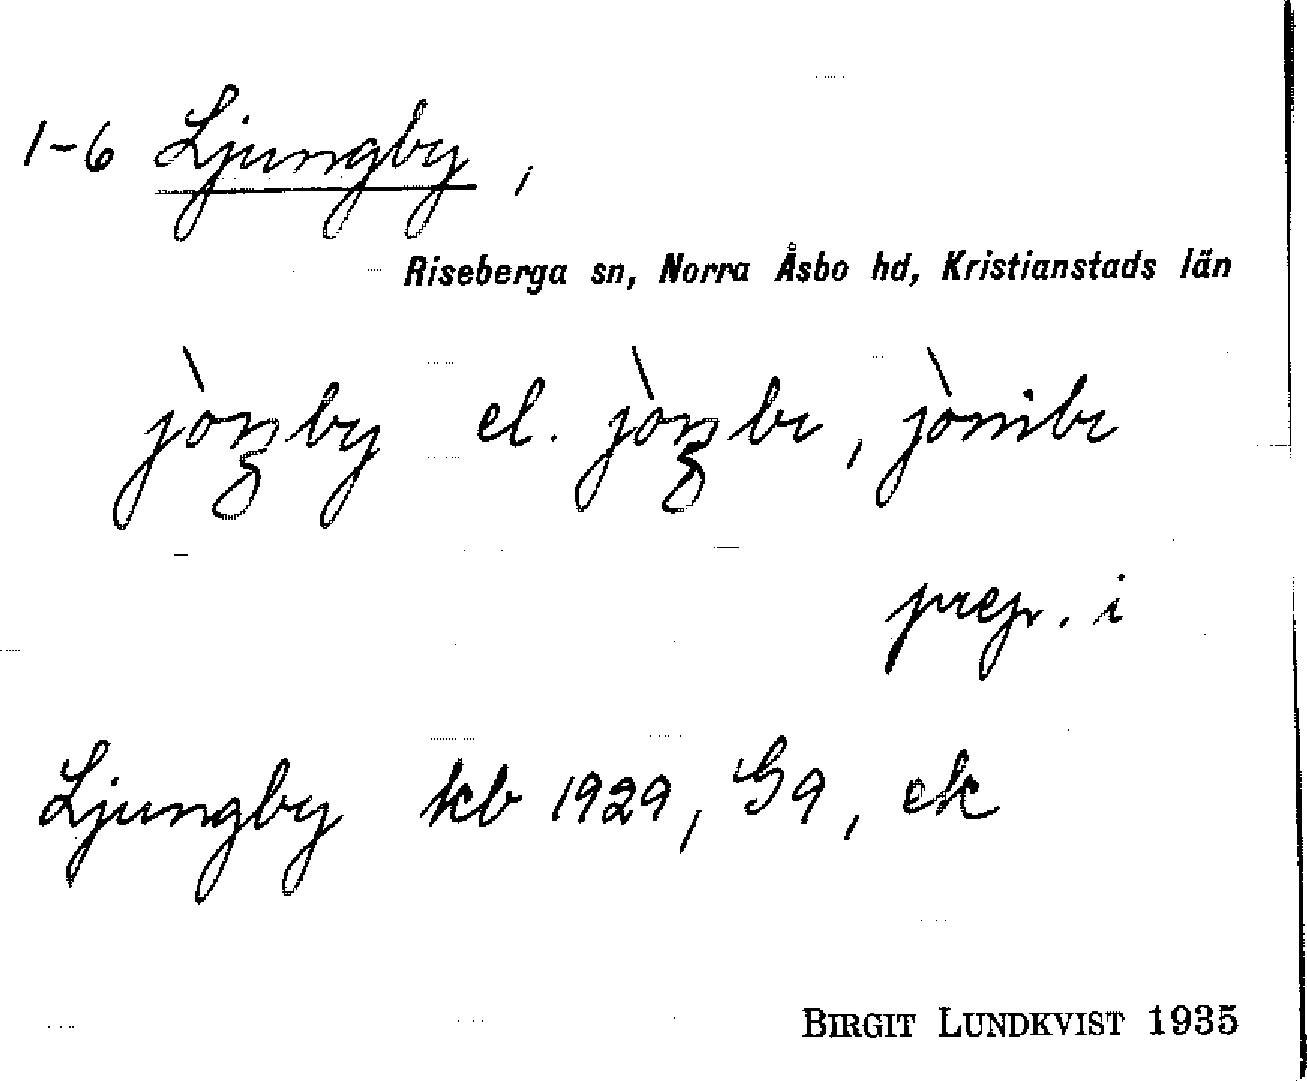 1-6 Ljungby,
Riseberga sn, Norra Åsbo hd, Kristianstads län
jòŋby el. jòŋbe, jòmbe
prep. i
Ljungby kb 1929, G9, ek
BIRGIT LUNDKVIST 1935